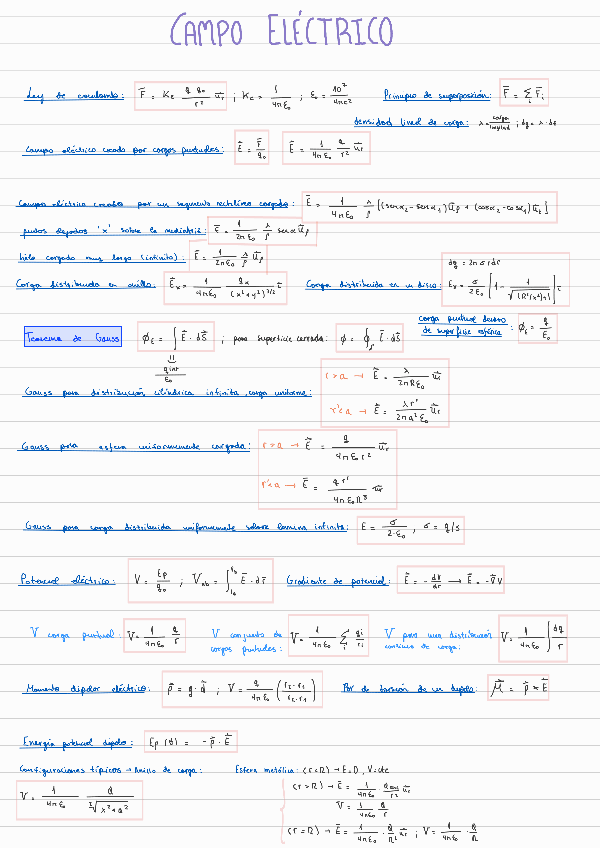 CAMPO ELÉCTRICO
Ley de coulomb: F⃗ = Kₑ q q₀ / r² u⃗ᵣ ; Kₑ = 1 / 4πε₀ ; ε₀ = 10⁷ / 4πc²
Principio de superposición: F⃗ = Σᵢ F⃗ᵢ
densidad lineal de carga: λ = carga / longitud ; dq = λ · dl
Campo eléctrico creado por cargas puntuales: E⃗ = F⃗ / q₀
E⃗ = 1 / 4πε₀ q / r² u⃗ᵣ
Campo eléctrico creado por un segmento rectilíneo cargado: E⃗ = 1 / 4πε₀ λ / ρ [(senα₂ - senα₁) u⃗ρ + (cosα₂ - cosα₁) u⃗ₜ]
puntos alejados 'x' sobre la mediatriz: E⃗ = 1 / 2πε₀ λ / ρ senα u⃗ρ
hilo cargado muy largo (infinito): E⃗ = 1 / 2πε₀ λ / ρ u⃗ρ
Carga distribuida en anillo: E⃗ₓ = 1 / 4πε₀ qx / (x²+y²)^3/2 i⃗
Carga distribuida en un disco:
dq = 2πσrdr
Teorema de Gauss
ϕ_E = ∫ E⃗ · dS⃗ ; para superficie cerrada: ϕ = ∮ₛ E⃗ · dS⃗
q int / ε₀
carga puntual dentro
de superficie esférica: ϕ_E = q / ε₀
Gauss para distribución cilíndrica infinita carga uniforme:
r > a → E⃗ = λ / 2πRε₀ u⃗ᵣ
r' < a → E⃗ = λ r' / 2πa²ε₀ u⃗ᵣ
Gauss para esfera uniformemente cargada:
r > a → E⃗ = q / 4πε₀r² u⃗ᵣ
r' < a → E⃗ = q r' / 4πε₀R³ u⃗ᵣ
Gauss para carga distribuida uniformemente sobre lamina infinita: E = σ / 2·ε₀ , σ = q/s
Potencial eléctrico: V = Ep / q₀ ; V_ab = ∫ E⃗ · dr⃗
Gradiente de potencial: E⃗ = - dV / dr → E⃗ = -∇⃗V
V carga puntual: V = 1 / 4πε₀ q / r
V conjunto de
cargas puntuales: V = 1 / 4πε₀ Σᵢ qᵢ / rᵢ
V para una distribución
continua de carga: V = 1 / 4πε₀ ∫ dq / r
Momento dipolar eléctrico: p⃗ = q · d⃗ ; V = q / 4πε₀ (r₂ - r₁ / r₂ · r₁)
Par de torsión de un dipolo: M⃗ = p⃗ × E⃗
Energía potencial dipolo: Ep (θ) = - p⃗ · E⃗
Configuraciones típicas → Anillo de carga:
V = 1 / 4πε₀ Q / ²√x²+a²
Esfera metálica: (r<R) → E=0 , V=cte
V = 1 / 4πε₀ Q / r
(r=R) → E⃗ = 1 / 4πε₀ · Q / R² u⃗ᵣ ; V = 1 / 4πε₀ · Q / R